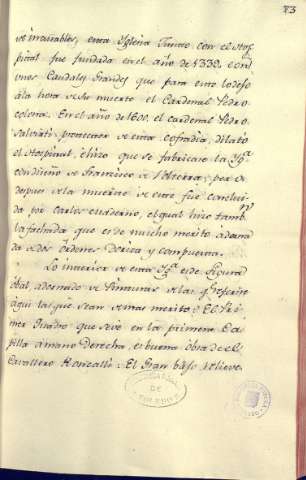 73
ve incurables, esta Yglesia Junto con el Hos-
pital fue fundada en el año de 1338, con
unos Caudales Grandes que para esto lo dejo
a la hora de su muerte el Cardenal Pedro
colona. En el año de 1600. el cardenal Pedro
Salviati, protector de esta cofradia, dilato
el Hospital, e hizo que se fabricase la Ygª.
con diseño de Francisco de Volterra; pero
despues de la muerte de este fue conclui-
da por Carlos maderno, el qual hizo tambⁿ.
la fachada que es de mucho merito, adorna
da de dos órdenes Dorica y compuesta.
Lo interior de esta Ygª. es de figura
obal, adornado de Pinturas de las qᵉ referire
aqui las que sean de mas merito: El Pri-
mer Quadro que se ve en la primera Ca-
pilla a mano derecha, es buena obra de el
Cavallero Roncalli. El Gran bajo relieve
DE
TOLEDO